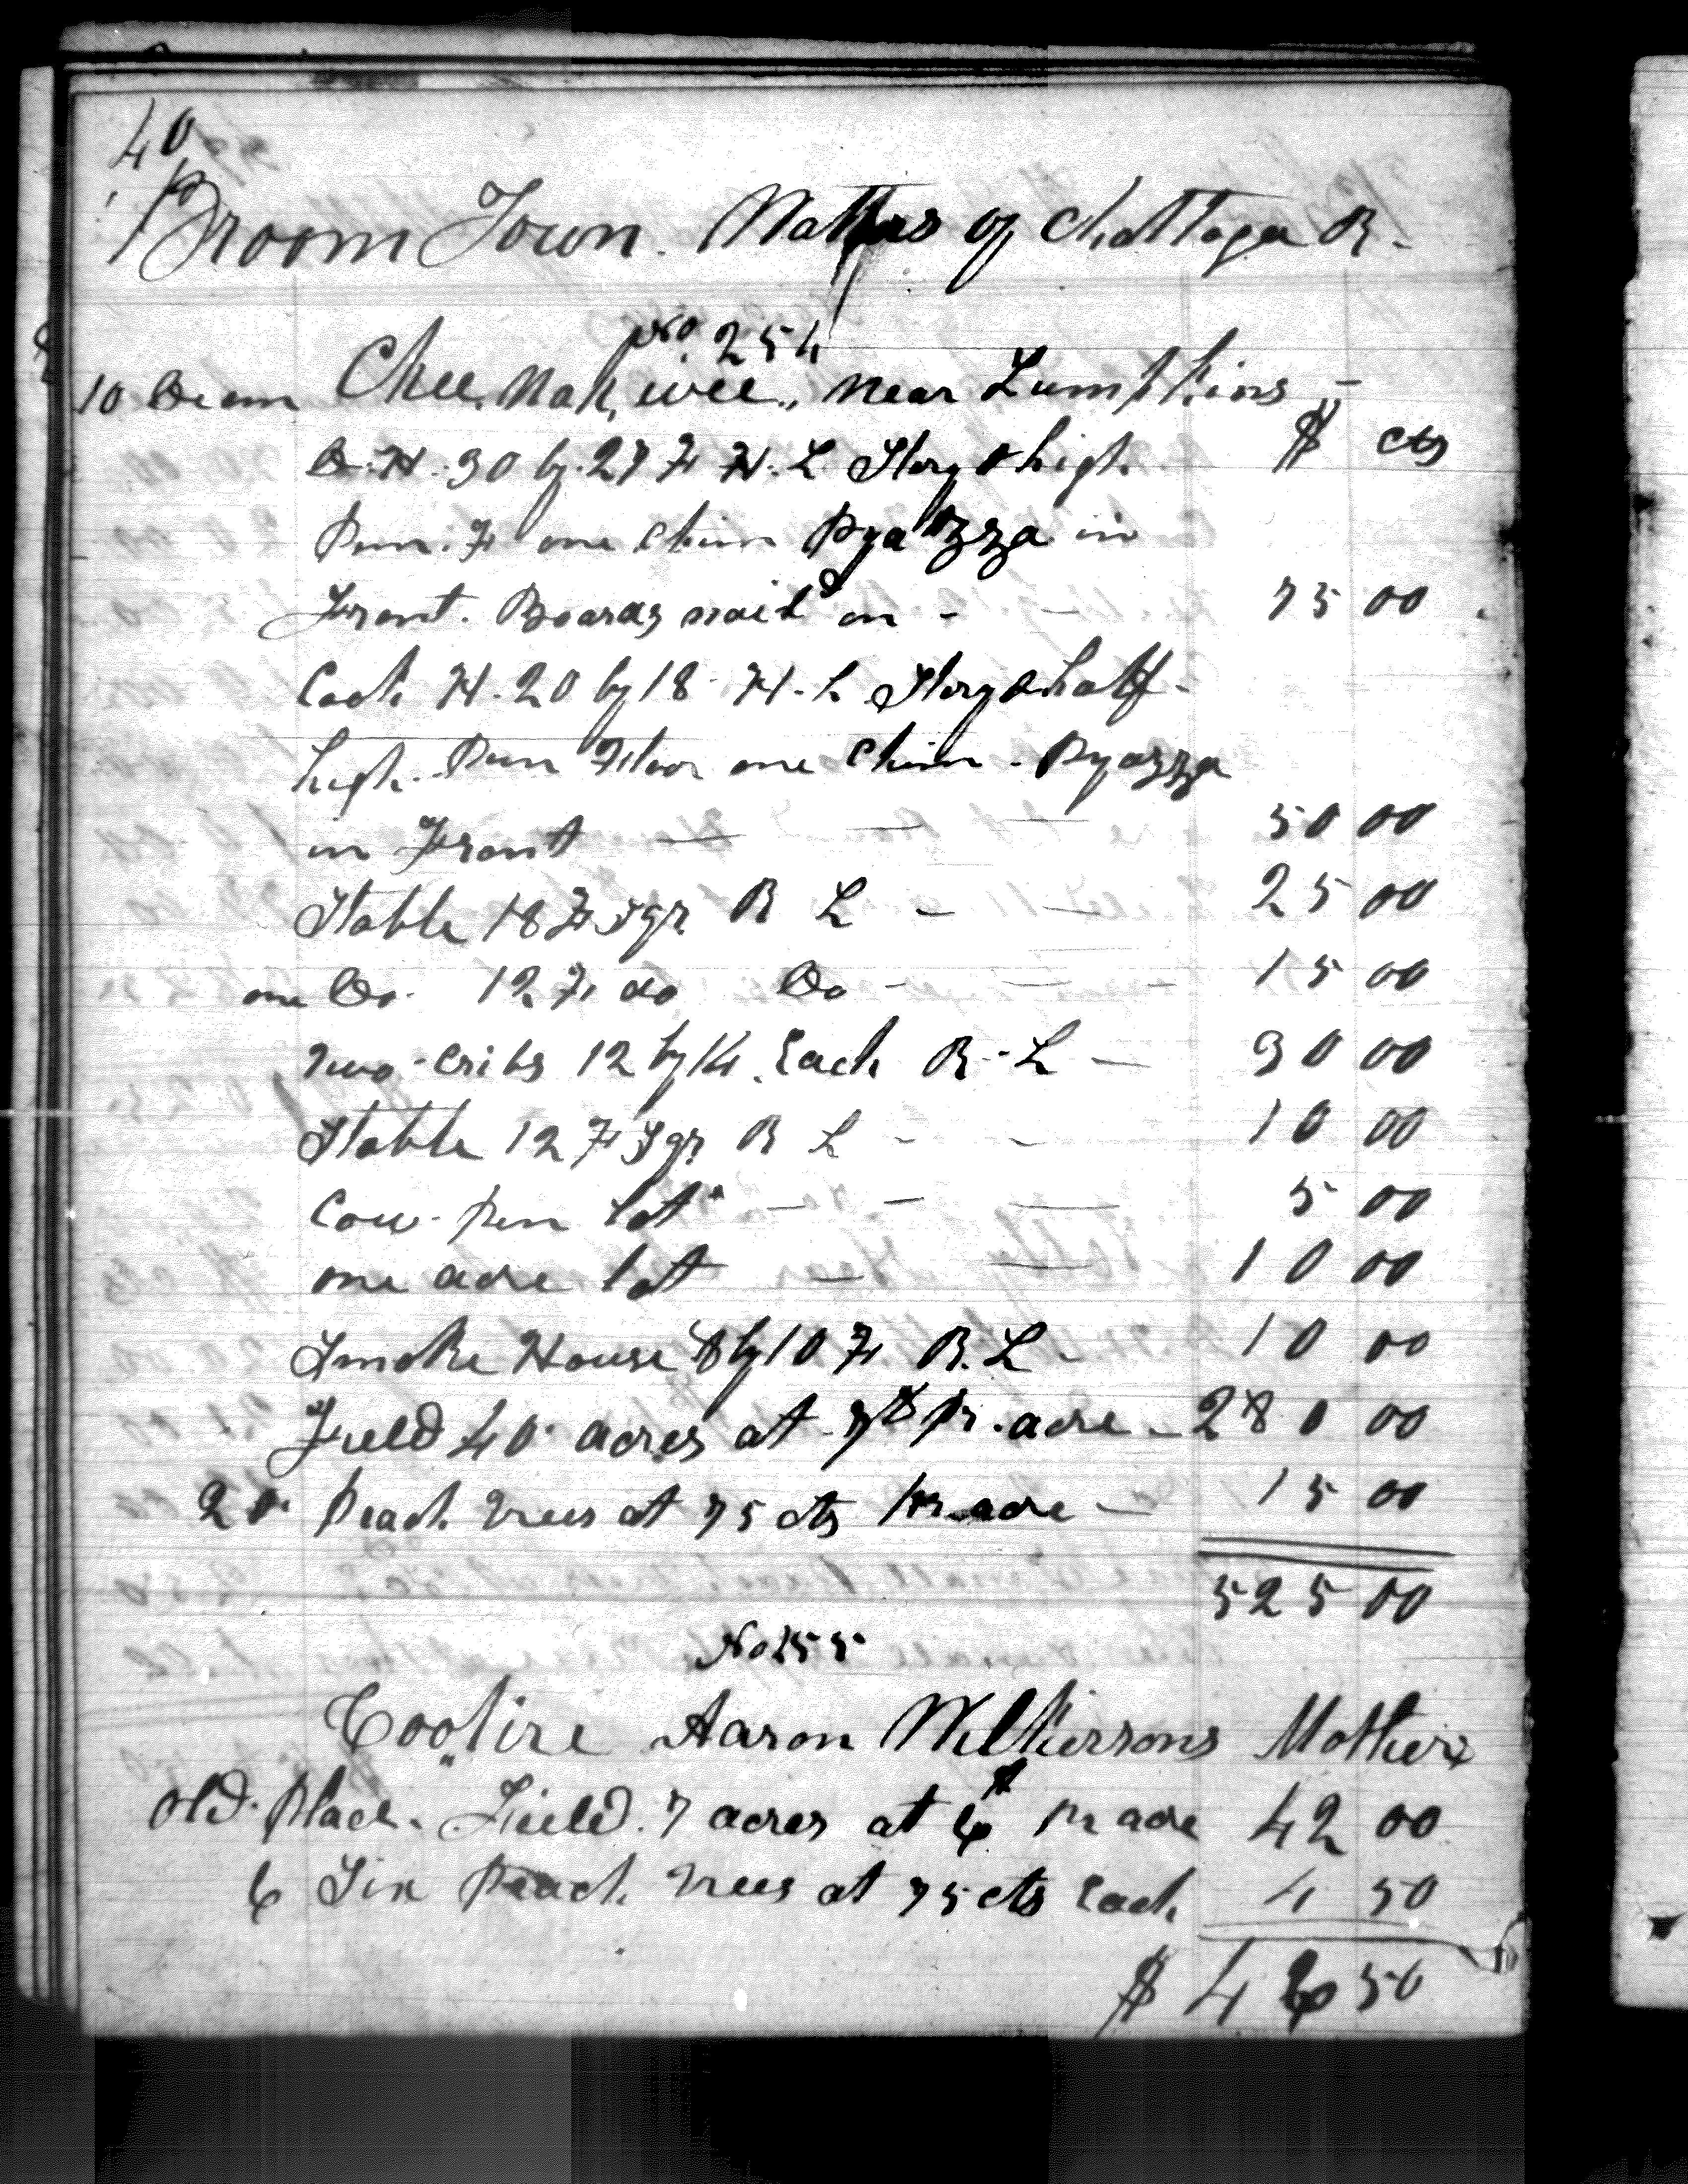 40
Broom Town. Watters of Chattooga R.
No. 254
10 Decem Chee,nah,wee,, near Lumpkins -
D. H. 30 by 27 Ft H. L. Story & high $ cts
Pun. F one Chim Pyazza in
Front. Boards naild on - - 75 00
Cook H. 20 by 18 H. L Story & half
high. Pun Floor one Chim. Pyazza
in Front — — — 50 00
Stable 18 Ft Sqr R L - — 25 00
one Do. 12 Ft do Do - — - 15 00
Two cribs 12 by 14 Each R. L — 30 00
Stable 12 Ft Sqr R L - - 10 00
Cow pen lot — - — 5 00
one acre lot — — 10 00
Smoke House 8 by 10 Ft R. L - 10 00
Field 40 acres at 7$ pr. acre - 280 00
20 Peach Trees at 75 cts pr acre — 15 00
525 00
No 255
Coo,,tire Aaron Wilkersons Mother
old place. Field. 7 acres at 6$ pr acre 42 00
6 Six Peach Trees at 75 cts Each 4 50
$ 46 50